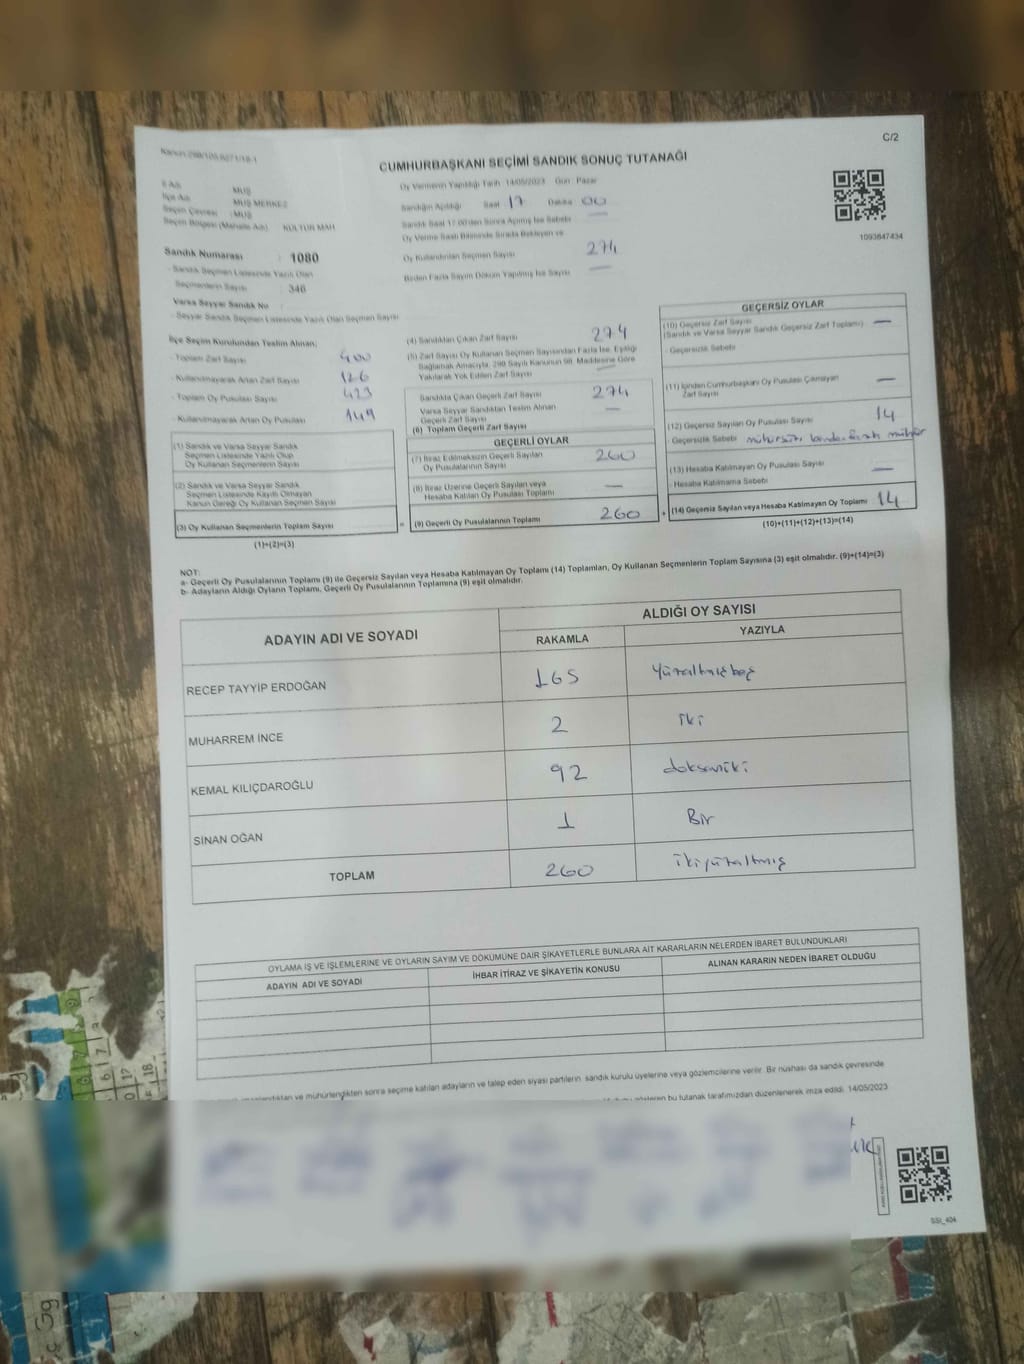 C/2
CUMHURBAŞKANI SEÇİMİ SANDIK SONUÇ TUTANAĞI
İl Adı : MUŞ
İlçe Adı : MUŞ MERKEZ
Seçim Çevresi : MUŞ
Seçim Bölgesi (Mahalle Adı) KÜLTÜR MAH
Sandık Numarası : 1080
- Sandık Seçmen Listesinde Yazılı Olan
Seçmenlerin Sayısı : 346
Varsa Seyyar Sandık No :
- Seyyar Sandık Seçmen Listesinde Yazılı Olan Seçmen Sayısı
Oy Vermenin Yapıldığı Tarih 14/05/2023 Gün : Pazar
Sandığın Açıldığı Saat 17 Dakika 00
Sandık Saat 17:00'den Sonra Açılmış İse Sebebi —
Oy Verme Saati Bitiminde Sırada Bekleyen ve
Oy Kullandırılan Seçmen Sayısı 274
Birden Fazla Sayım Döküm Yapılmış İse Sayısı —
1093847434
İlçe Seçim Kurulundan Teslim Alınan;
- Toplam Zarf Sayısı 400
- Kullanılmayarak Artan Zarf Sayısı 126
- Toplam Oy Pusulası Sayısı 423
- Kullanılmayarak Artan Oy Pusulası 149
(1) Sandık ve Varsa Seyyar Sandık
Seçmen Listesinde Yazılı Olup
Oy Kullanan Seçmenlerin Sayısı
(2) Sandık ve Varsa Seyyar Sandık
Seçmen Listesinde Kayıtlı Olmayan
Kanun Gereği Oy Kullanan Seçmen Sayısı
(3) Oy Kullanan Seçmenlerin Toplam Sayısı
(1)+(2)=(3)
(4) Sandıktan Çıkan Zarf Sayısı 274
(5) Zarf Sayısı Oy Kullanan Seçmen Sayısından Fazla İse, Eşitliği
Sağlamak Amacıyla, 298 Sayılı Kanunun 98. Maddesine Göre
Yakılarak Yok Edilen Zarf Sayısı —
Sandıkta Çıkan Geçerli Zarf Sayısı 274
Varsa Seyyar Sandıktan Teslim Alınan
Geçerli Zarf Sayısı —
(6) Toplam Geçerli Zarf Sayısı
GEÇERLİ OYLAR
(7) İtiraz Edilmeksizin Geçerli Sayılan
Oy Pusulalarının Sayısı 260
(8) İtiraz Üzerine Geçerli Sayılan veya
Hesaba Katılan Oy Pusulası Toplamı —
= (9) Geçerli Oy Pusulalarının Toplamı 260
GEÇERSİZ OYLAR
(10) Geçersiz Zarf Sayısı —
(Sandık ve Varsa Seyyar Sandık Geçersiz Zarf Toplamı)
- Geçersizlik Sebebi
(11) İçinden Cumhurbaşkanı Oy Pusulası Çıkmayan
Zarf Sayısı —
(12) Geçersiz Sayılan Oy Pusulası Sayısı 14
- Geçersizlik Sebebi mühürsüz mühür
(13) Hesaba Katılmayan Oy Pusulası Sayısı —
- Hesaba Katılmama Sebebi
+ (14) Geçersiz Sayılan veya Hesaba Katılmayan Oy Toplamı 14
(10)+(11)+(12)+(13)=(14)
NOT:
a- Geçerli Oy Pusulalarının Toplamı (9) ile Geçersiz Sayılan veya Hesaba Katılmayan Oy Toplamı (14) Toplamları, Oy Kullanan Seçmenlerin Toplam Sayısına (3) eşit olmalıdır. (9)+(14)=(3)
b- Adayların Aldığı Oyların Toplamı, Geçerli Oy Pusulalarının Toplamına (9) eşit olmalıdır.
ADAYIN ADI VE SOYADI ALDIĞI OY SAYISI
RAKAMLA YAZIYLA
RECEP TAYYİP ERDOĞAN 165 Yüzaltmışbeş
MUHARREM İNCE 2 iki
KEMAL KILIÇDAROĞLU 92 doksaniki
SİNAN OĞAN 1 Bir
TOPLAM 260 ikiyüzaltmış
OYLAMA İŞ VE İŞLEMLERİNE VE OYLARIN SAYIM VE DÖKÜMÜNE DAİR ŞİKAYETLERLE BUNLARA AİT KARARLARIN NELERDEN İBARET BULUNDUKLARI
ADAYIN ADI VE SOYADI İHBAR İTİRAZ VE ŞİKAYETİN KONUSU ALINAN KARARIN NEDEN İBARET OLDUĞU
ve mühürlendikten sonra seçime katılan adayların ve talep eden siyasi partilerin sandık kurulu üyelerine veya gözlemcilerine verilir. Bir nüshası da sandık çevresinde
bu tutanak tarafımızdan düzenlenerek imza edildi. 14/05/2023
SSI_404